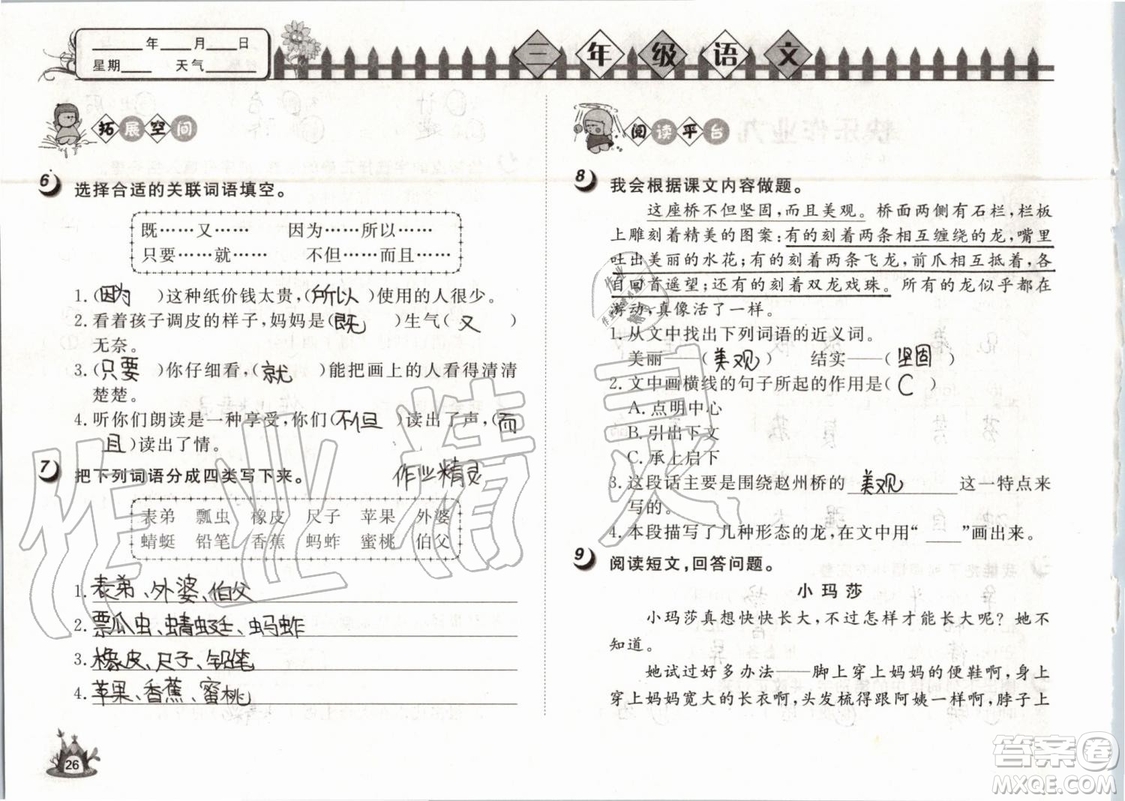 ____年____月____日
星期____ 天气____
三年级语文
拓展空间
6 选择合适的关联词语填空。
既……又…… 因为……所以……
只要……就…… 不但……而且……
1. (因为)这种纸价钱太贵,(所以)使用的人很少。
2. 看着孩子调皮的样子,妈妈是(既)生气(又)
无奈。
3. (只要)你仔细看,(就)能把画上的人看得清清
楚楚。
4. 听你们朗读是一种享受,你们(不但)读出了声,(而
且)读出了情。
7 把下列词语分成四类写下来。
作业精灵
表弟 瓢虫 橡皮 尺子 苹果 外婆
蜻蜓 铅笔 香蕉 蚂蚱 蜜桃 伯父
1. 表弟、外婆、伯父
2. 瓢虫、蜻蜓、蚂蚱
3. 橡皮、尺子、铅笔
4. 苹果、香蕉、蜜桃
26
阅读平台
8 我会根据课文内容做题。
这座桥不但坚固,而且美观。桥面两侧有石栏,栏板
上雕刻着精美的图案:有的刻着两条相互缠绕的龙,嘴里
吐出美丽的水花;有的刻着两条飞龙,前爪相互抵着,各
自回首遥望;还有的刻着双龙戏珠。所有的龙似乎都在
游动,真像活了一样。
1. 从文中找出下列词语的近义词。
美丽——(美观) 结实——(坚固)
2. 文中画横线的句子所起的作用是(C)
A. 点明中心
B. 引出下文
C. 承上启下
3. 这段话主要是围绕赵州桥的 美观 这一特点来
写的。
4. 本段描写了几种形态的龙,在文中用“____”画出来。
9 阅读短文,回答问题。
小玛莎
小玛莎真想快快长大,不过怎样才能长大呢?她不
知道。
她试过好多办法——脚上穿上妈妈的便鞋啊,身上
穿上妈妈宽大的长衣啊,头发梳得跟阿姨一样啊,脖子上
作业精灵
答案圈
MXQE.COM